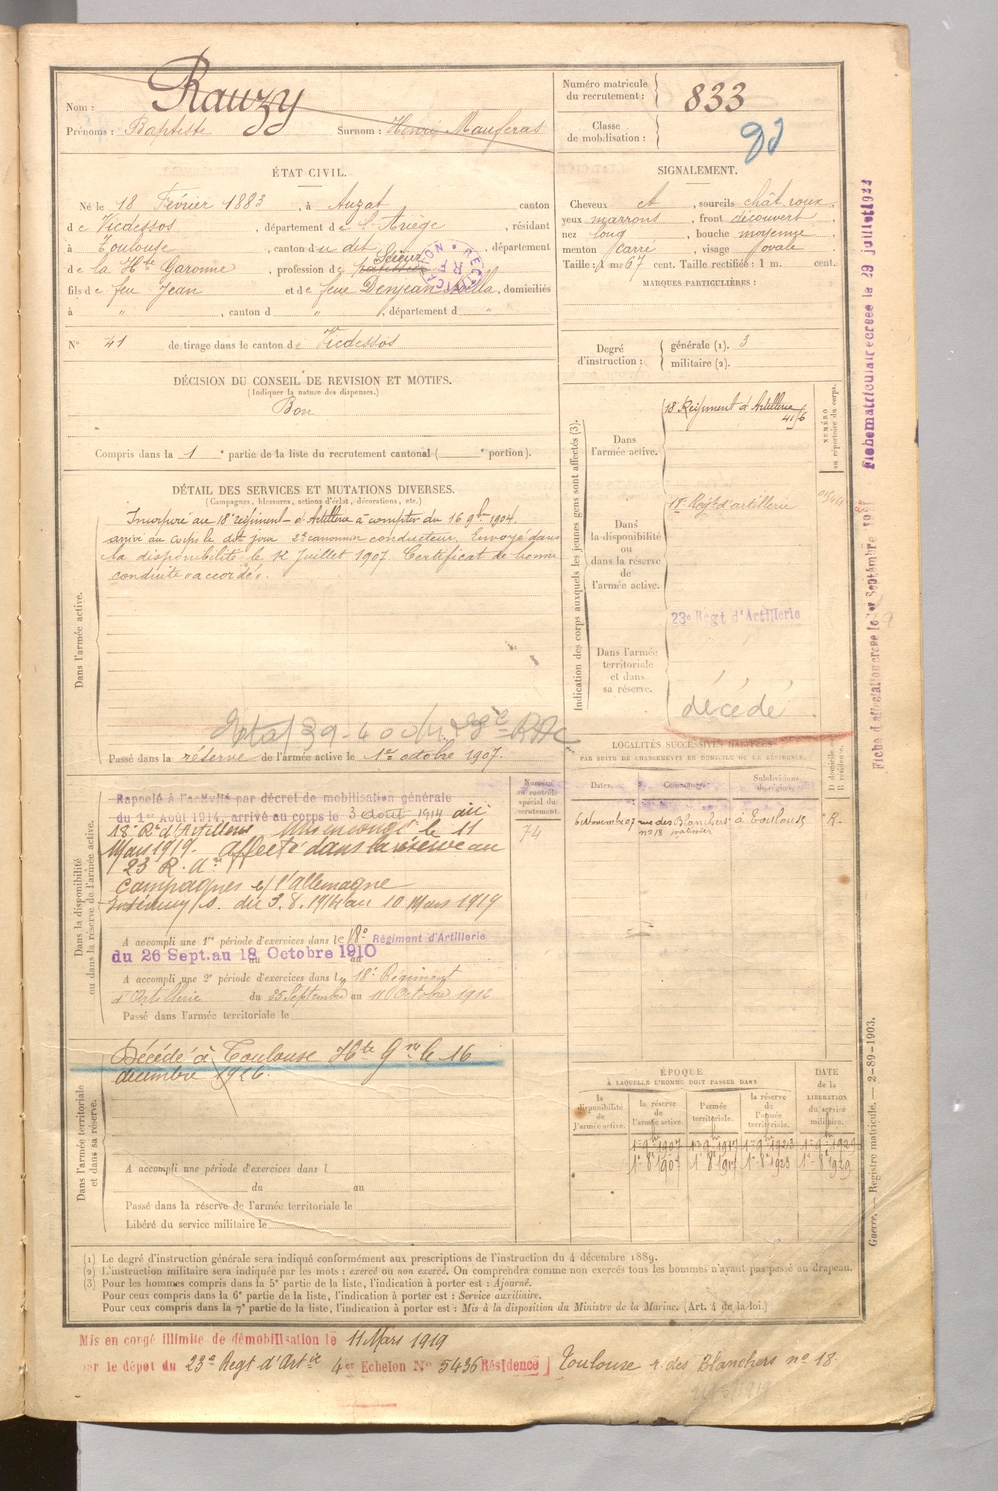 Nom : Rauzy
Prénoms : Baptiste Surnom : Henri Mauferas
Numéro matricule du recrutement : 833
Classe de mobilisation :
ÉTAT CIVIL.
Né le 18 Février 1883, à Auzat canton
de Vicdessos, département de l'Ariège, résidant
à Toulouse, canton du dit, département
de la Hte Garonne, profession de
fils de feu Jean et de feue Denjean, domiciliés
à " , canton d " , département d "
N° 41 de tirage dans le canton de Vicdessos
SIGNALEMENT.
Cheveux et , sourcils chât roux.
yeux marrons , front découvert
nez long , bouche moyenne
menton carré , visage ovale
Taille : 1 m 67 cent. Taille rectifiée : 1 m. cent.
MARQUES PARTICULIÈRES :
Degré d'instruction : générale (1). 3
militaire (2).
DÉCISION DU CONSEIL DE REVISION ET MOTIFS.
(Indiquer la nature des dispenses.)
Bon
Compris dans la 1 e partie de la liste du recrutement cantonal ( e portion).
DÉTAIL DES SERVICES ET MUTATIONS DIVERSES.
(Campagnes, blessures, actions d'éclat, décorations, etc.)
Dans l'armée active.
Incorporé au 18e régiment d'Artillerie à compter du 16 9bre 1904.
arrivé au corps le dit jour 2e canonnier conducteur. Envoyé dans
la disponibilité le 12 Juillet 1907 Certificat de bonne
conduite accordé.
Passé dans la réserve de l'armée active le 1er octobre 1907.
Indication des corps auxquels les jeunes gens sont affectés (3).
NUMÉRO au répertoire du corps.
Dans l'armée active.
18 Régiment d'Artillerie
Dans la disponibilité ou dans la réserve de l'armée active.
18e Régt d'artillerie
23e Regt d'Artillerie
Dans l'armée territoriale et dans sa réserve.
décédé
LOCALITÉS SUCCESSIVES HABITÉES
PAR SUITE DE CHANGEMENTS DE DOMICILE OU DE RÉSIDENCE.
Dates. Communes. Subdivisions de région. D domicile R résidence.
6 novembre 07 rue des Blanchers n°18 à Toulouse R.
Numéro au contrôle spécial du recrutement.
74
Dans la disponibilité ou dans la réserve de l'armée active.
Rappelé à l'activité par décret de mobilisation générale
du 1er Août 1914, arrivé au corps le 3 août 1914 au
18e Rt d'Artillerie le 11
Mars 1919. Affecté dans la réserve au
23 R. Aie
Campagnes c/ l'allemagne
du 3.8.1914 au 10 Mars 1919
A accompli une 1re période d'exercices dans le 18e Régiment d'Artillerie
du 26 Sept. au 18 Octobre 1910
A accompli une 2e période d'exercices dans le 18e Régiment
d'Artillerie du 25 Septembre au 11 Octobre 1912
Passé dans l'armée territoriale le
Dans l'armée territoriale et dans sa réserve.
Décédé à Toulouse Hte Gne le 16
décembre 1926.
A accompli une période d'exercices dans l
du au
Passé dans la réserve de l'armée territoriale le
Libéré du service militaire le
ÉPOQUE
À LAQUELLE L'HOMME DOIT PASSER DANS
DATE de la LIBÉRATION du service militaire.
la disponibilité de l'armée active.
la réserve de l'armée active.
l'armée territoriale.
la réserve de l'armée territoriale.
1er 9bre 1907 1er 9bre 1917 1er 9bre 1923 1er 9bre 1929
1er 8bre 1907 1er 8bre 1917 1er 8bre 1923 1er 8bre 1929
(1) Le degré d'instruction générale sera indiqué conformément aux prescriptions de l'instruction du 4 décembre 1889.
(2) L'instruction militaire sera indiquée par les mots : exercé ou non exercé. On comprendra comme non exercés tous les hommes n'ayant pas passé au drapeau.
(3) Pour les hommes compris dans la 5e partie de la liste, l'indication à porter est : Ajourné.
Pour ceux compris dans la 6e partie de la liste, l'indication à porter est : Service auxiliaire.
Pour ceux compris dans la 7e partie de la liste, l'indication à porter est : Mis à la disposition du Ministre de la Marine. (Art. 4 de la loi.)
Mis en congé illimité de démobilisation le 11 Mars 1919
par le dépôt du 23e Regt d'Artie 4er Echelon No 5436 Résidence ] Toulouse r. des Blanchers n° 18.
Guerre. — Registre matricule. — 2-89-1903.
RECTIFICATION RF